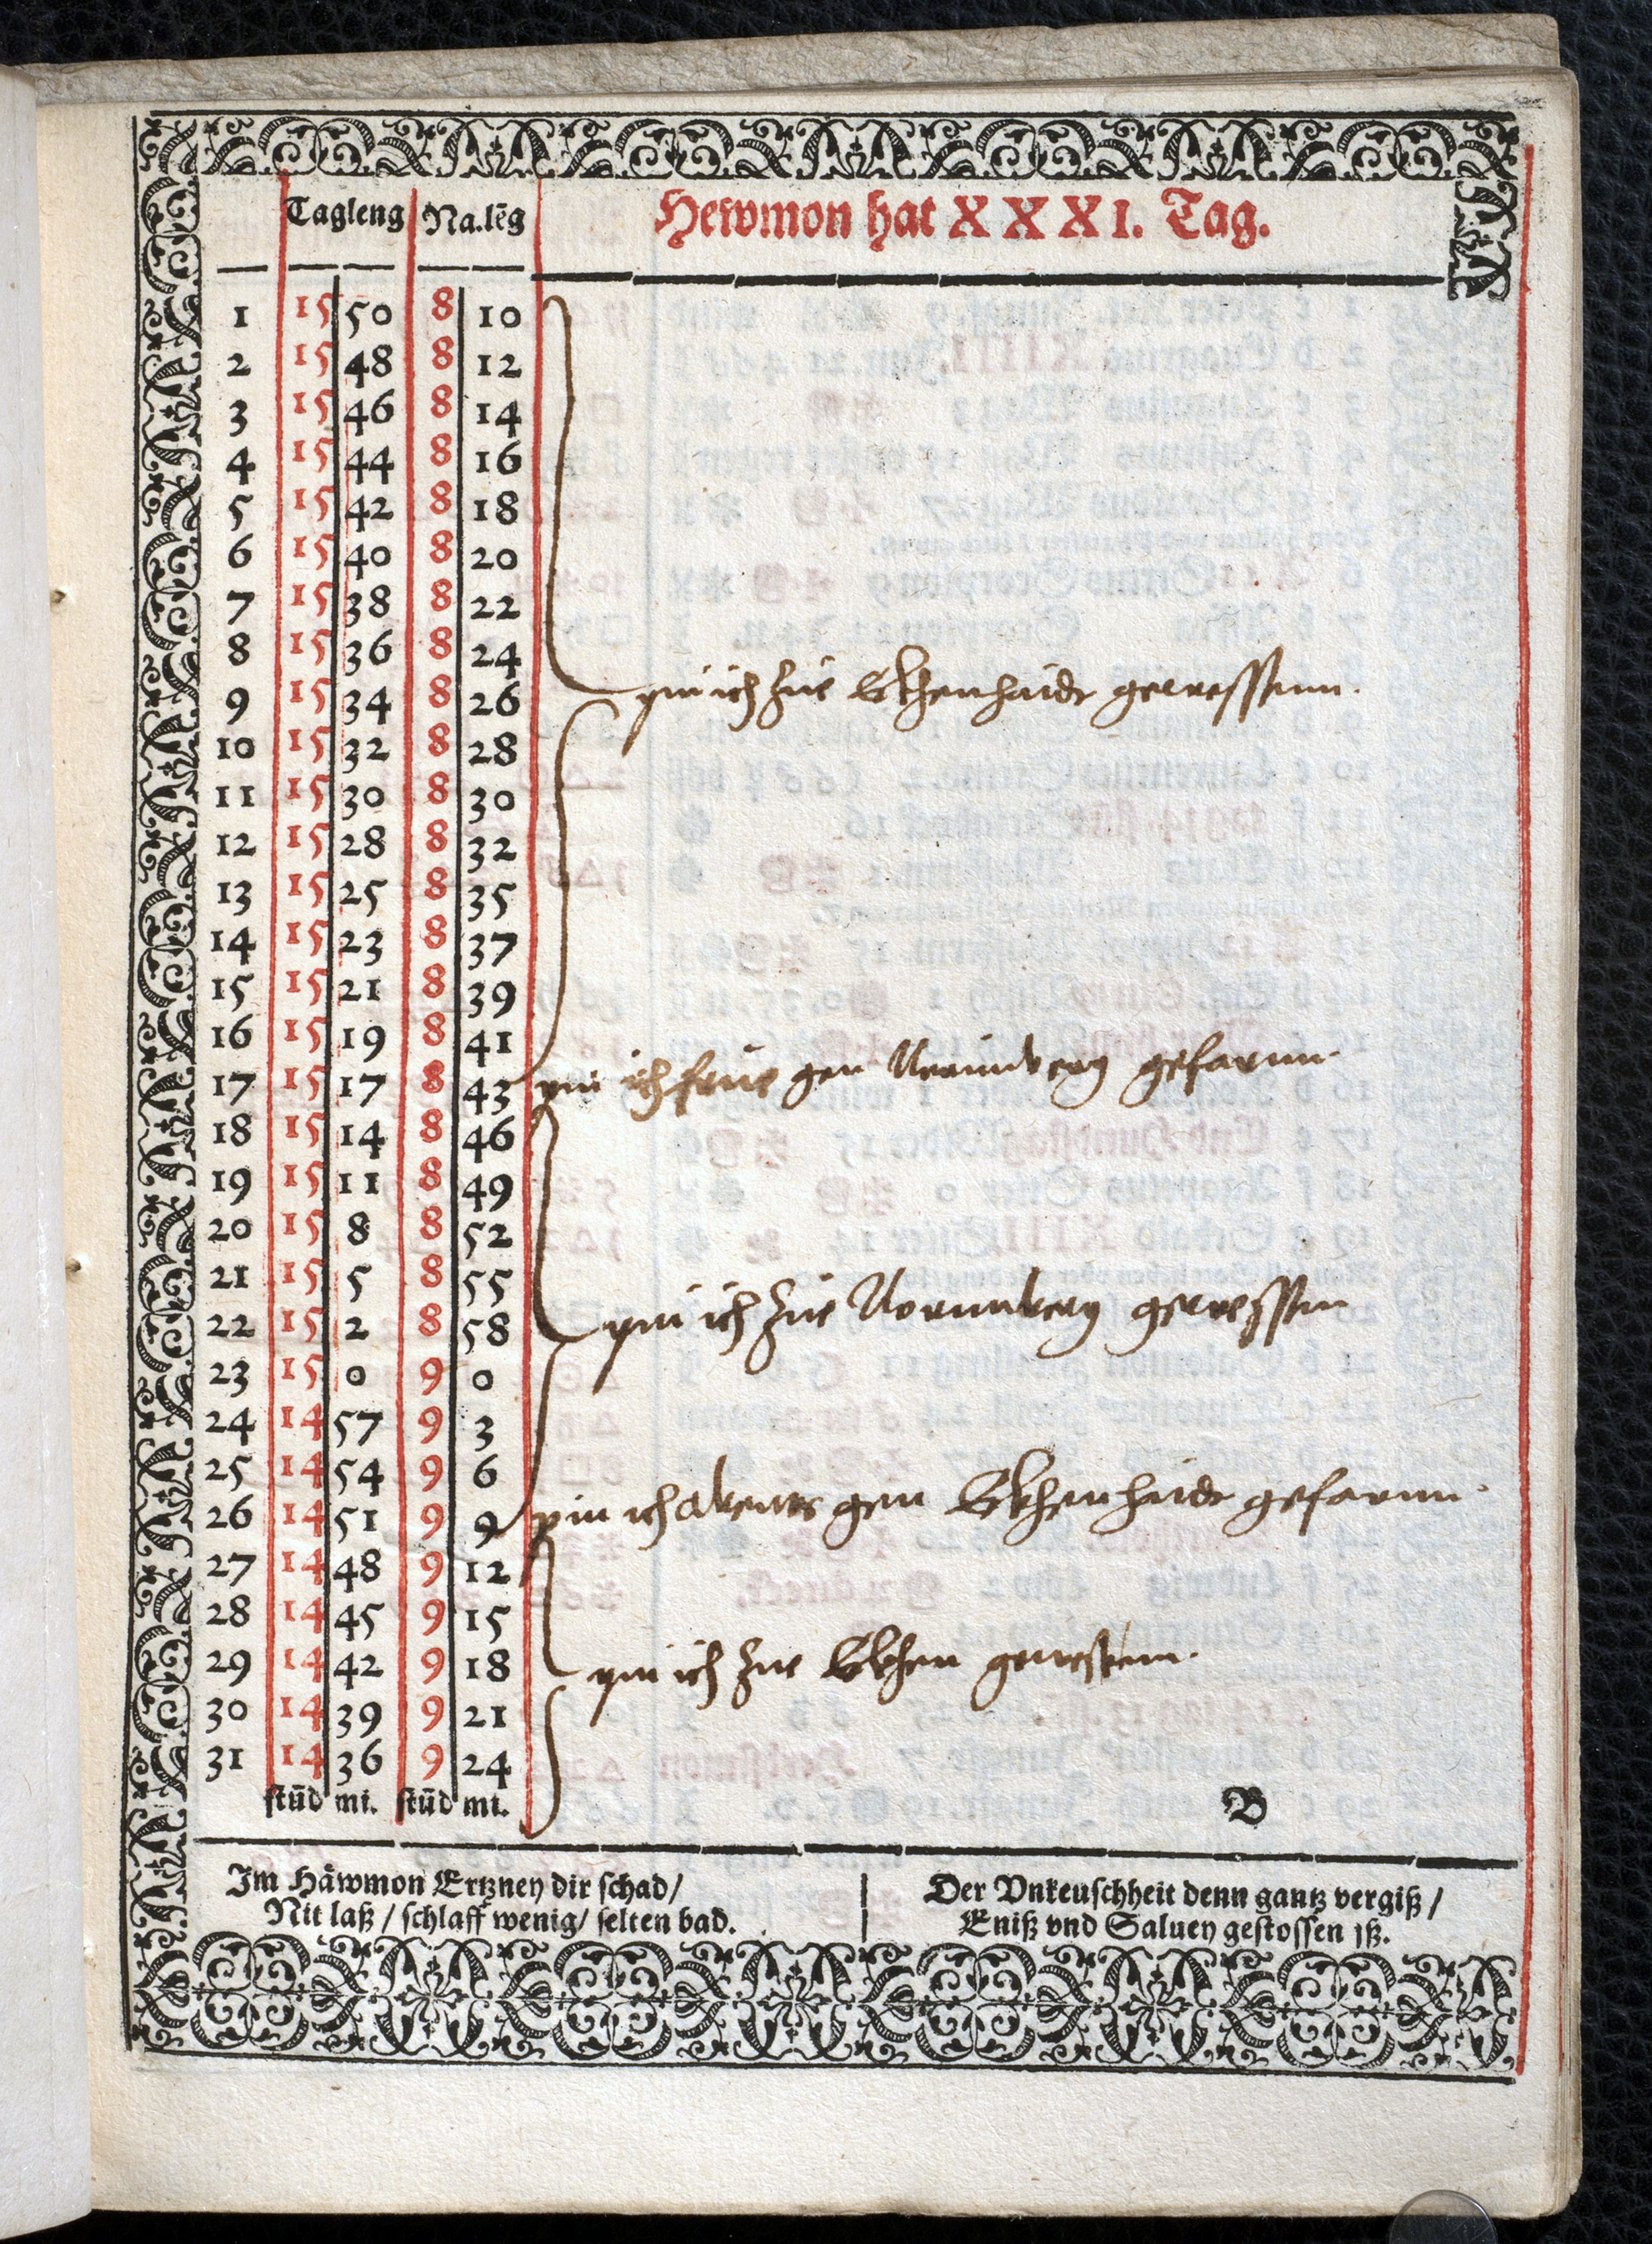 Tagleng Na.lēg Hewmon hat XXXI. Tag.
1 15 50 8 10
2 15 48 8 12
3 15 46 8 14
4 15 44 8 16
5 15 42 8 18
6 15 40 8 20
7 15 38 8 22
8 15 36 8 24
pin ich zue Ekhenhaide gewessenn.
9 15 34 8 26
10 15 32 8 28
11 15 30 8 30
12 15 28 8 32
13 15 25 8 35
14 15 23 8 37
15 15 21 8 39
16 15 19 8 41
17 15 17 8 43 pin ich frue gen Nernnberg gefarnn.
18 15 14 8 46
19 15 11 8 49
20 15 8 8 52
21 15 5 8 55
22 15 2 8 58 pin ich zue Nornnberg gewessen
23 15 0 9 0
24 14 57 9 3
25 14 54 9 6
26 14 51 9 9 pin ich abents gen Ekhenhaide gefarnn.
27 14 48 9 12
28 14 45 9 15
29 14 42 9 18 pin ich zue Ekhen gewessenn.
30 14 39 9 21
31 14 36 9 24
stūd mi. stūd mi.
B
Im Häwmon Ertzney dir schad/
Nit laß / schlaff wenig/ selten bad.
Der Vnkeuschheit denn gantz vergiß /
Eniß vnd Saluey gestossen jß.